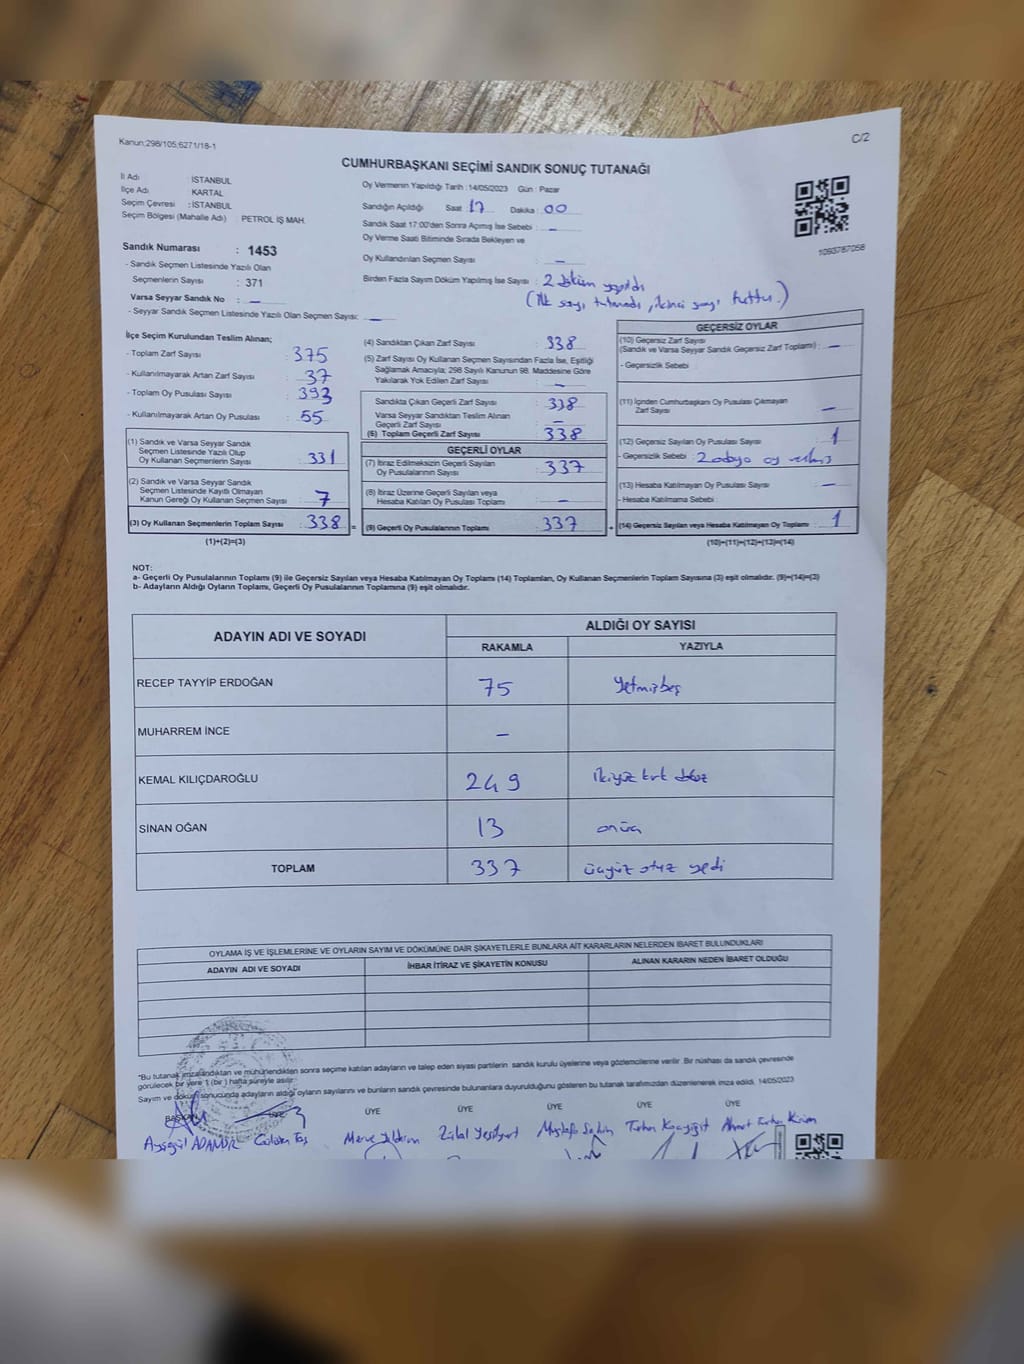 Kanun:298/105;6271/18-1
C/2
CUMHURBAŞKANI SEÇİMİ SANDIK SONUÇ TUTANAĞI
İl Adı : İSTANBUL
İlçe Adı : KARTAL
Seçim Çevresi : İSTANBUL
Seçim Bölgesi (Mahalle Adı) PETROL İŞ MAH.
Sandık Numarası : 1453
- Sandık Seçmen Listesinde Yazılı Olan
Seçmenlerin Sayısı : 371
Varsa Seyyar Sandık No : —
- Seyyar Sandık Seçmen Listesinde Yazılı Olan Seçmen Sayısı: —
Oy Vermenin Yapıldığı Tarih :14/05/2023 Gün : Pazar
Sandığın Açıldığı Saat : 17 Dakika : 00
Sandık Saat 17:00'den Sonra Açmış İse Sebebi : —
Oy Verme Saati Bitiminde Sırada Bekleyen ve
Oy Kullandırılan Seçmen Sayısı : —
Birden Fazla Sayım Döküm Yapılmış İse Sayısı : 2 döküm yapıldı
(İlk sayı tutmadı, ikinci sayı tuttu.)
1093787058
İlçe Seçim Kurulundan Teslim Alınan;
- Toplam Zarf Sayısı : 375
- Kullanılmayarak Artan Zarf Sayısı : 37
- Toplam Oy Pusulası Sayısı : 393
- Kullanılmayarak Artan Oy Pusulası : 55
(1) Sandık ve Varsa Seyyar Sandık
Seçmen Listesinde Yazılı Olup
Oy Kullanan Seçmenlerin Sayısı : 331
(2) Sandık ve Varsa Seyyar Sandık
Seçmen Listesinde Kayıtlı Olmayan
Kanun Gereği Oy Kullanan Seçmen Sayısı : 7
(3) Oy Kullanan Seçmenlerin Toplam Sayısı : 338 =
(1)+(2)=(3)
(4) Sandıktan Çıkan Zarf Sayısı : 338
(5) Zarf Sayısı Oy Kullanan Seçmen Sayısından Fazla İse, Eşitliği
Sağlamak Amacıyla; 298 Sayılı Kanunun 98. Maddesine Göre
Yakılarak Yok Edilen Zarf Sayısı : —
Sandıkta Çıkan Geçerli Zarf Sayısı : 338
Varsa Seyyar Sandıktan Teslim Alınan
Geçerli Zarf Sayısı : —
(6) Toplam Geçerli Zarf Sayısı : 338
GEÇERLİ OYLAR
(7) İtiraz Edilmeksizin Geçerli Sayılan
Oy Pusulalarının Sayısı : 337
(8) İtiraz Üzerine Geçerli Sayılan veya
Hesaba Katılan Oy Pusulası Toplamı : —
(9) Geçerli Oy Pusulalarının Toplamı : 337 +
GEÇERSİZ OYLAR
(10) Geçersiz Zarf Sayısı
(Sandık ve Varsa Seyyar Sandık Geçersiz Zarf Toplamı) : —
- Geçersizlik Sebebi :
(11) İçinden Cumhurbaşkanı Oy Pusulası Çıkmayan
Zarf Sayısı : —
(12) Geçersiz Sayılan Oy Pusulası Sayısı : 1
- Geçersizlik Sebebi : 2 adaya oy
(13) Hesaba Katılmayan Oy Pusulası Sayısı : —
- Hesaba Katılmama Sebebi :
(14) Geçersiz Sayılan veya Hesaba Katılmayan Oy Toplamı : 1
(10)+(11)+(12)+(13)=(14)
NOT:
a- Geçerli Oy Pusulalarının Toplamı (9) ile Geçersiz Sayılan veya Hesaba Katılmayan Oy Toplamı (14) Toplamları, Oy Kullanan Seçmenlerin Toplam Sayısına (3) eşit olmalıdır. (9)+(14)=(3)
b- Adayların Aldığı Oyların Toplamı, Geçerli Oy Pusulalarının Toplamına (9) eşit olmalıdır.
ADAYIN ADI VE SOYADI ALDIĞI OY SAYISI
RAKAMLA YAZIYLA
RECEP TAYYİP ERDOĞAN 75 Yetmişbeş
MUHARREM İNCE —
KEMAL KILIÇDAROĞLU 249 İkiyüz kırk dokuz
SİNAN OĞAN 13 onüç
TOPLAM 337 üçyüz otuz yedi
OYLAMA İŞ VE İŞLEMLERİNE VE OYLARIN SAYIM VE DÖKÜMÜNE DAİR ŞİKAYETLERLE BUNLARA AİT KARARLARIN NELERDEN İBARET BULUNDUKLARI
ADAYIN ADI VE SOYADI İHBAR İTİRAZ VE ŞİKAYETİN KONUSU ALINAN KARARIN NEDEN İBARET OLDUĞU
"Bu tutanak imzalandıktan ve mühürlendikten sonra seçime katılan adayların ve talep eden siyasi partilerin sandık kurulu üyelerine veya gözlemcilerine verilir. Bir nüshası da sandık çevresinde
görülecek bir yere 1 (bir) hafta süreyle asılır.
Sayım ve döküm sonucunda adayların aldığı oyların sayılarını ve bunların sandık çevresinde bulunanlara duyurulduğunu gösteren bu tutanak tarafımızdan düzenlenerek imza edildi. 14/05/2023
BAŞKAN ÜYE ÜYE ÜYE ÜYE ÜYE ÜYE
Ayşegül Gülden Taş Merve Yıldırım Zülal Yeşilyurt Mustafa Turhan Koçyiğit Ahmet